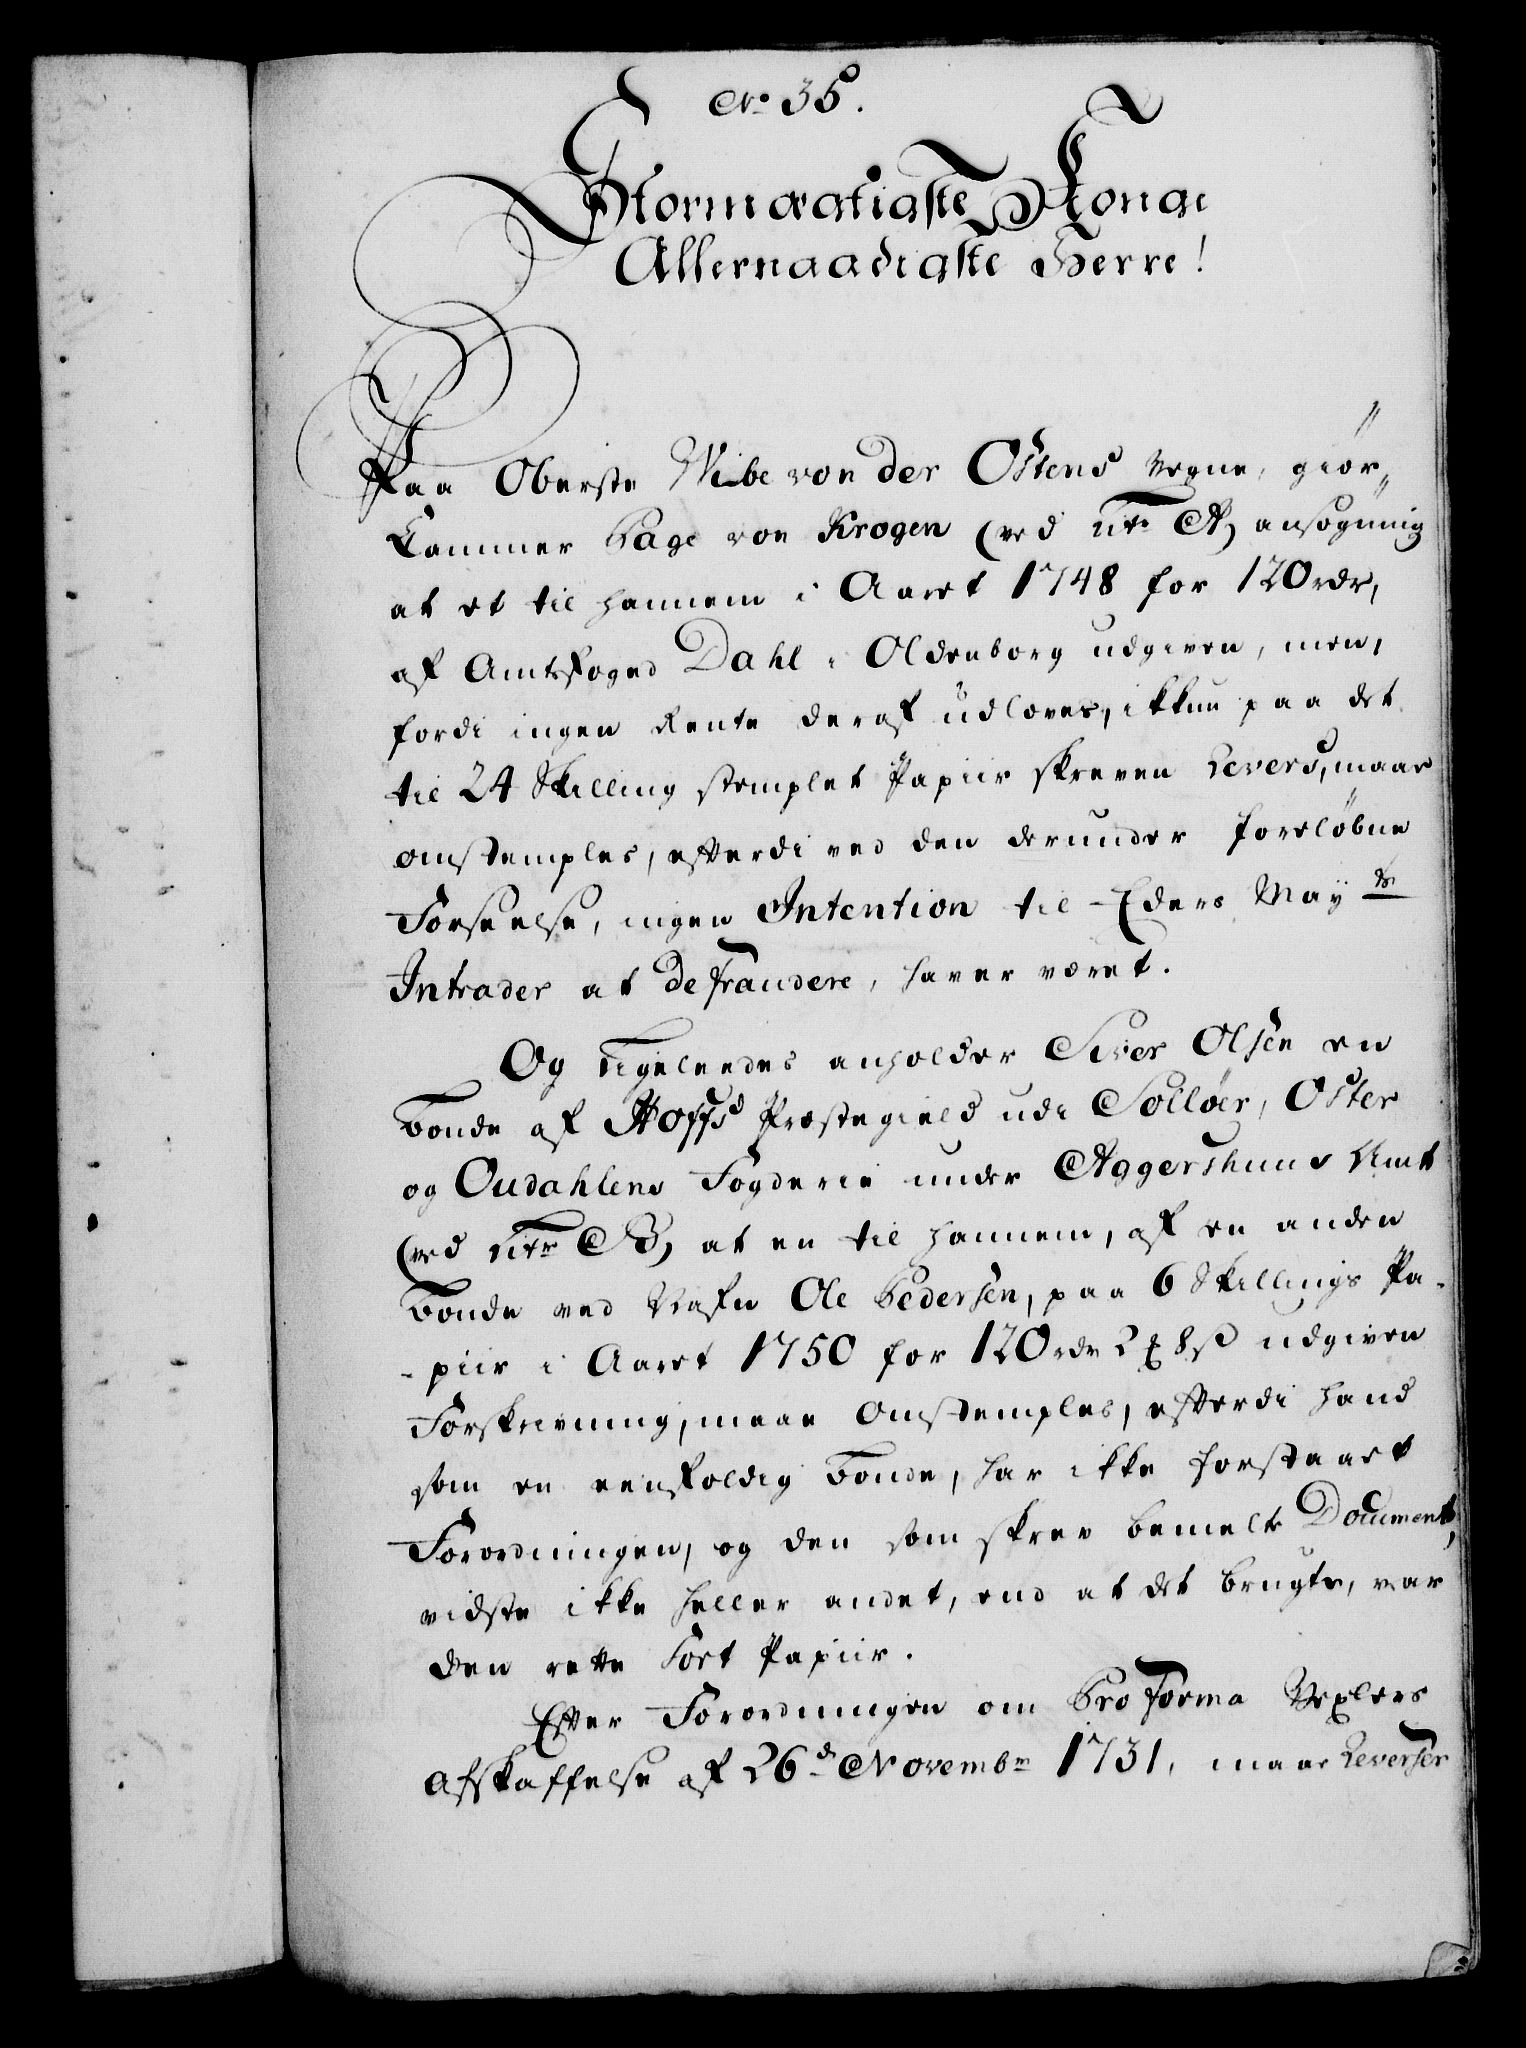 No 35.
Stormægtigste Konge
Allernaadigste Herre!
Paa Oberste Wibe von der Ostens Vegne, giør„
Kammer Page von Krogen (ved Litr A) ansøgning
at et til hannem i Aaret 1748 for 120 rdr,
af Amtsfoged Dahl i Oldenborg udgiven, men,
fordi ingen Rente deraf udloves, ikkun paa det
til 24 Skilling stemplet Papiir skreven Revers, maae
omstemples, efterdi ved den derunder foreløbne
Forseelse, ingen Intention til Eders Mayts
Intrader at defraudere, haver været.
Og ligeleedes anholder Siver Olsen en
bonde af Hoffs Præstegield udi Solløer, Oster
og Oudahlens Fogderie under Aggershuus Amt
(ved Litr B) at en til hannem, af en anden
bonde ved Nafn Ole Pedersen, paa 6 Skillings Pa-
-piir i Aaret 1750 for 120 rdr 2 ꝸ 8 ß udgiven
Forskrivning, maae omstemples, efterdi hand
som en eenfoldig bonde, har ikke forstaaet
Forordningen, og den som skrev bemelte Document,
vidste ikke heller andet, end at det brugte, var
den rette Sort Papiir.
Efter Forordningen om Pro Forma Vexlers
Afskaffelse af 26d Novembr 1731, maae Reverser